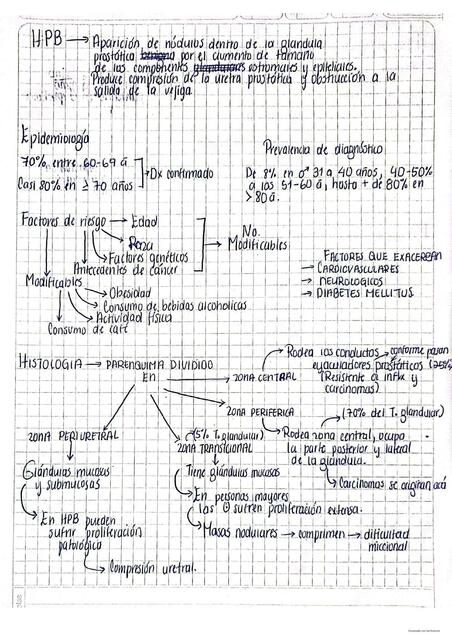 HPB → Aparición de nódulos dentro de la glandula
prostática benigna por el aumento de tamaño
de las componentes glandulares estromales y epiteliales.
Produce compresión de la uretra prostática y obstrucción a la
salida de la vejiga.
Epidemiología
70% entre 60-69 ā
Casi 80% en ≥ 70 años
Dx confirmado
Prevalencia de diagnóstico
De 8% en ♂ 31 a 40 años, 40-50%
a los 51-60 ā, hasta + de 80% en
> 80 ā.
Factores de riesgo → Edad
Raza
Factores genéticos
Antecedentes de cáncer
No
Modificables
Modificables
Obesidad
Consumo de bebidas alcoholicas
Actividad física
Consumo de café
FACTORES QUE EXACERBAN
→ CARDIOVASCULARES
→ NEUROLOGICOS
→ DIABETES MELLITUS
HISTOLOGIA → PARENQUIMA DIVIDIDO
EN
ZONA CENTRAL
Rodea los conductos → conforme pasan
eyaculadores prostáticos (25%)
(Resistente a inflx y
carcinomas)
ZONA PERIFERICA
(70% del T. glandular)
Rodea zona central, ocupa
la parte posterior y lateral
de la glándula.
Carcinomas se originan acá
ZONA PERIURETRAL
Glándulas mucosas
y submucosas
En HPB pueden
sufrir proliferación
patológica
Compresión uretral.
(5% T. glandular)
ZONA TRANSICIONAL
Tiene glándulas mucosas
En personas mayores
las sufren proliferación extensa.
Masas nodulares → comprimen → dificultad
miccional